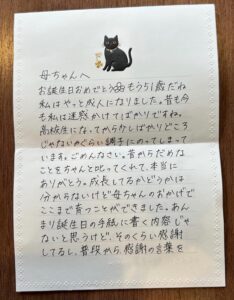 母ちゃんへ
お誕生日おめでとう もう51歳だね
私はやっと成人になりました。昔も今
も私は迷惑かけてばかりですね。
高校生になってから少しばかりどころ
じゃないのぐらい調子にのってしまって
います。ごめんなさい。昔からだめな
ことをちゃんと叱ってくれて、本当に
ありがとう。成長してるかどうかは
分からないけど母ちゃんのおかげで
ここまで育つことができました。あん
まり誕生日の手紙に書く内容じゃ
ないと思うけど、そのくらい感謝
してるし、普段から感謝の言葉を